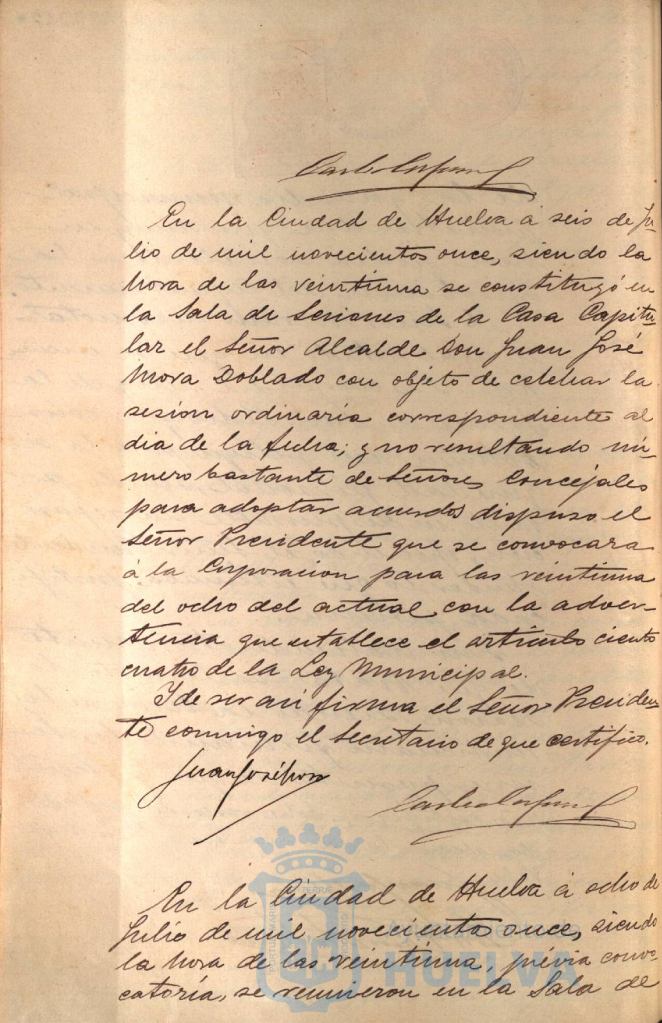 En la Ciudad de Huelva á seis de Ju-
lio de mil novecientos once, siendo la
hora de las veintiuna se constituyó en
la Sala de Sesiones de la Casa Capitu-
lar el Señor Alcalde Don Juan José
Mora Doblado con objeto de celebrar la
sesión ordinaria correspondiente al
dia de la fecha; y no resultando nú-
mero bastante de Señores Concejales
para adoptar acuerdos dispuso el
Señor Presidente que se convocara
á la Corporacion para las veintiuna
del ocho del actual con la adver-
tencia que establece el artículo ciento
cuatro de la Ley Municipal.
Y de ser asi firma el Señor Presiden-
te conmigo el Secretario de que certifico.
Juan José Mora
En la Ciudad de Huelva á ocho de
Julio de mil novecientos once, siendo
la hora de las veintiuna, prévia convo-
catoria, se reunieron en la Sala de
HUELVA